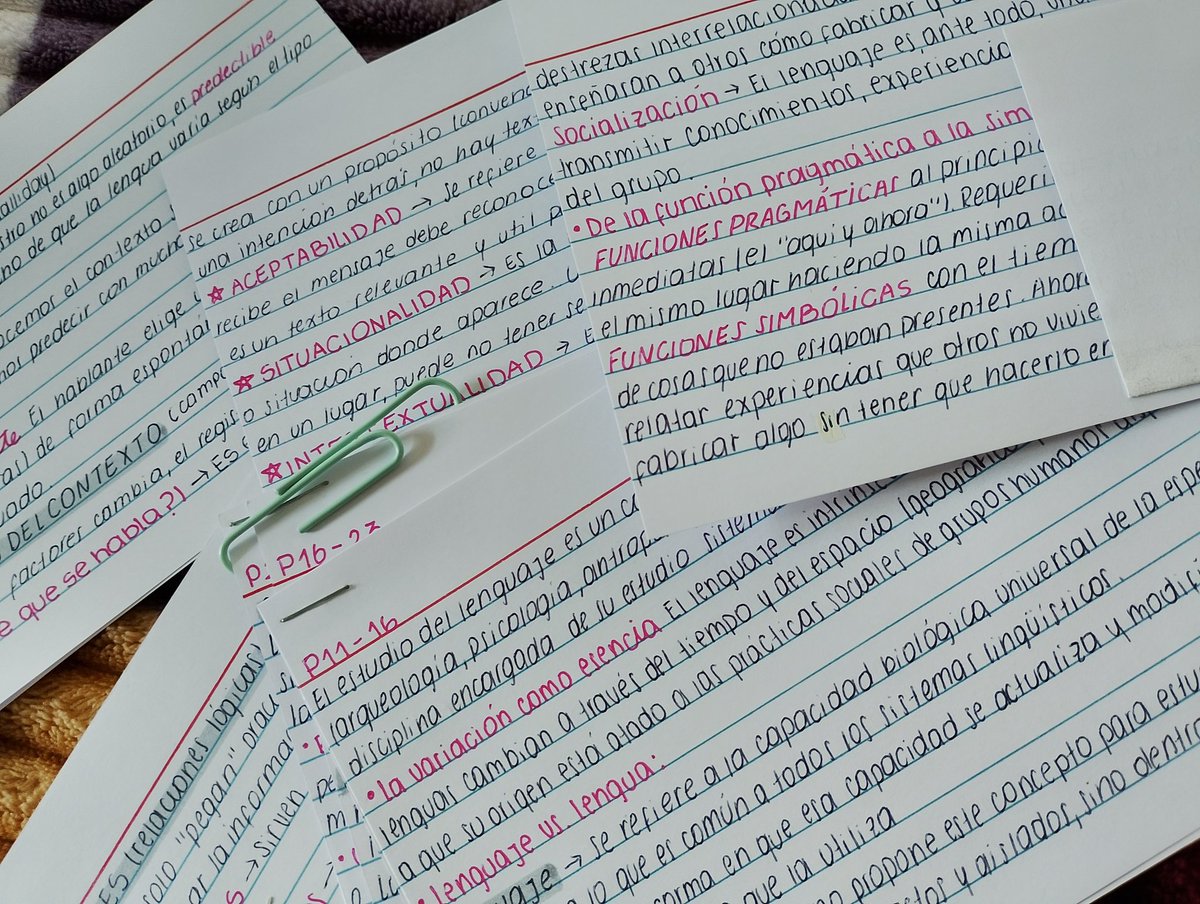 alliday)
no es algo aleatorio, es predectible
no de que la lengua varia segun el tipo
cemos el contexto
nos predecir con much
El hablante elige
de forma espontá
uado.
DEL CONTEXTO (camp
factores cambia, el regis
e que se habla?) → ES
se crea con un propósito (conven
una intención detrás, no hay tex
☆ ACEPTABILIDAD → se refiere
recibe el mensaje debe reconoce
es un texto relevante y util p
☆ SITUACIONALIDAD → Es la
o situación donde aparece.
en un lugar, puede no tener se
☆ INTERTEXTUALIDAD → E
destrezas interrelaciona
enseñaran a otros cómo fabricar y
Socialización → El lenguaje es, ante todo, un
transmitir conocimientos, experiencia
del grupo.
• De la función pragmática a la sim
FUNCIONES PRAGMÁTICAS al principio
inmediatas (el "aqui y ahora"). Requeri
el mismo lugar haciendo la misma ac
FUNCIONES SIMBÓLICAS con el tiem
de cosas que no estaban presentes. Ahora
relatar experiencias que otros no vivie
fabricar algo sin tener que hacerlo en
P: P16-23
P11-16
El estudio del lenguaje es un c
(arqueología, psicología, antrop
disciplina encargada de su estudio sistem
• la variación como esencia El lenguaje es intrins
lenguas cambian a través del tiempo y del espacio (geográfic
a que su origen está atado a las prácticas sociales de grupos humanos
• lenguaje vs. lengua:
uaje → se refiere a la capacidad biológica universal de la espe
a lo que es común a todos los sistemas lingüísticos.
orma en que esa capacidad se actualiza y modifi
que la utiliza
o propone este concepto para estu
etos y aislados, sino dentr
ES (relaciones lógicas)
solo "pegan" orac
ar la informa
→ Sirven